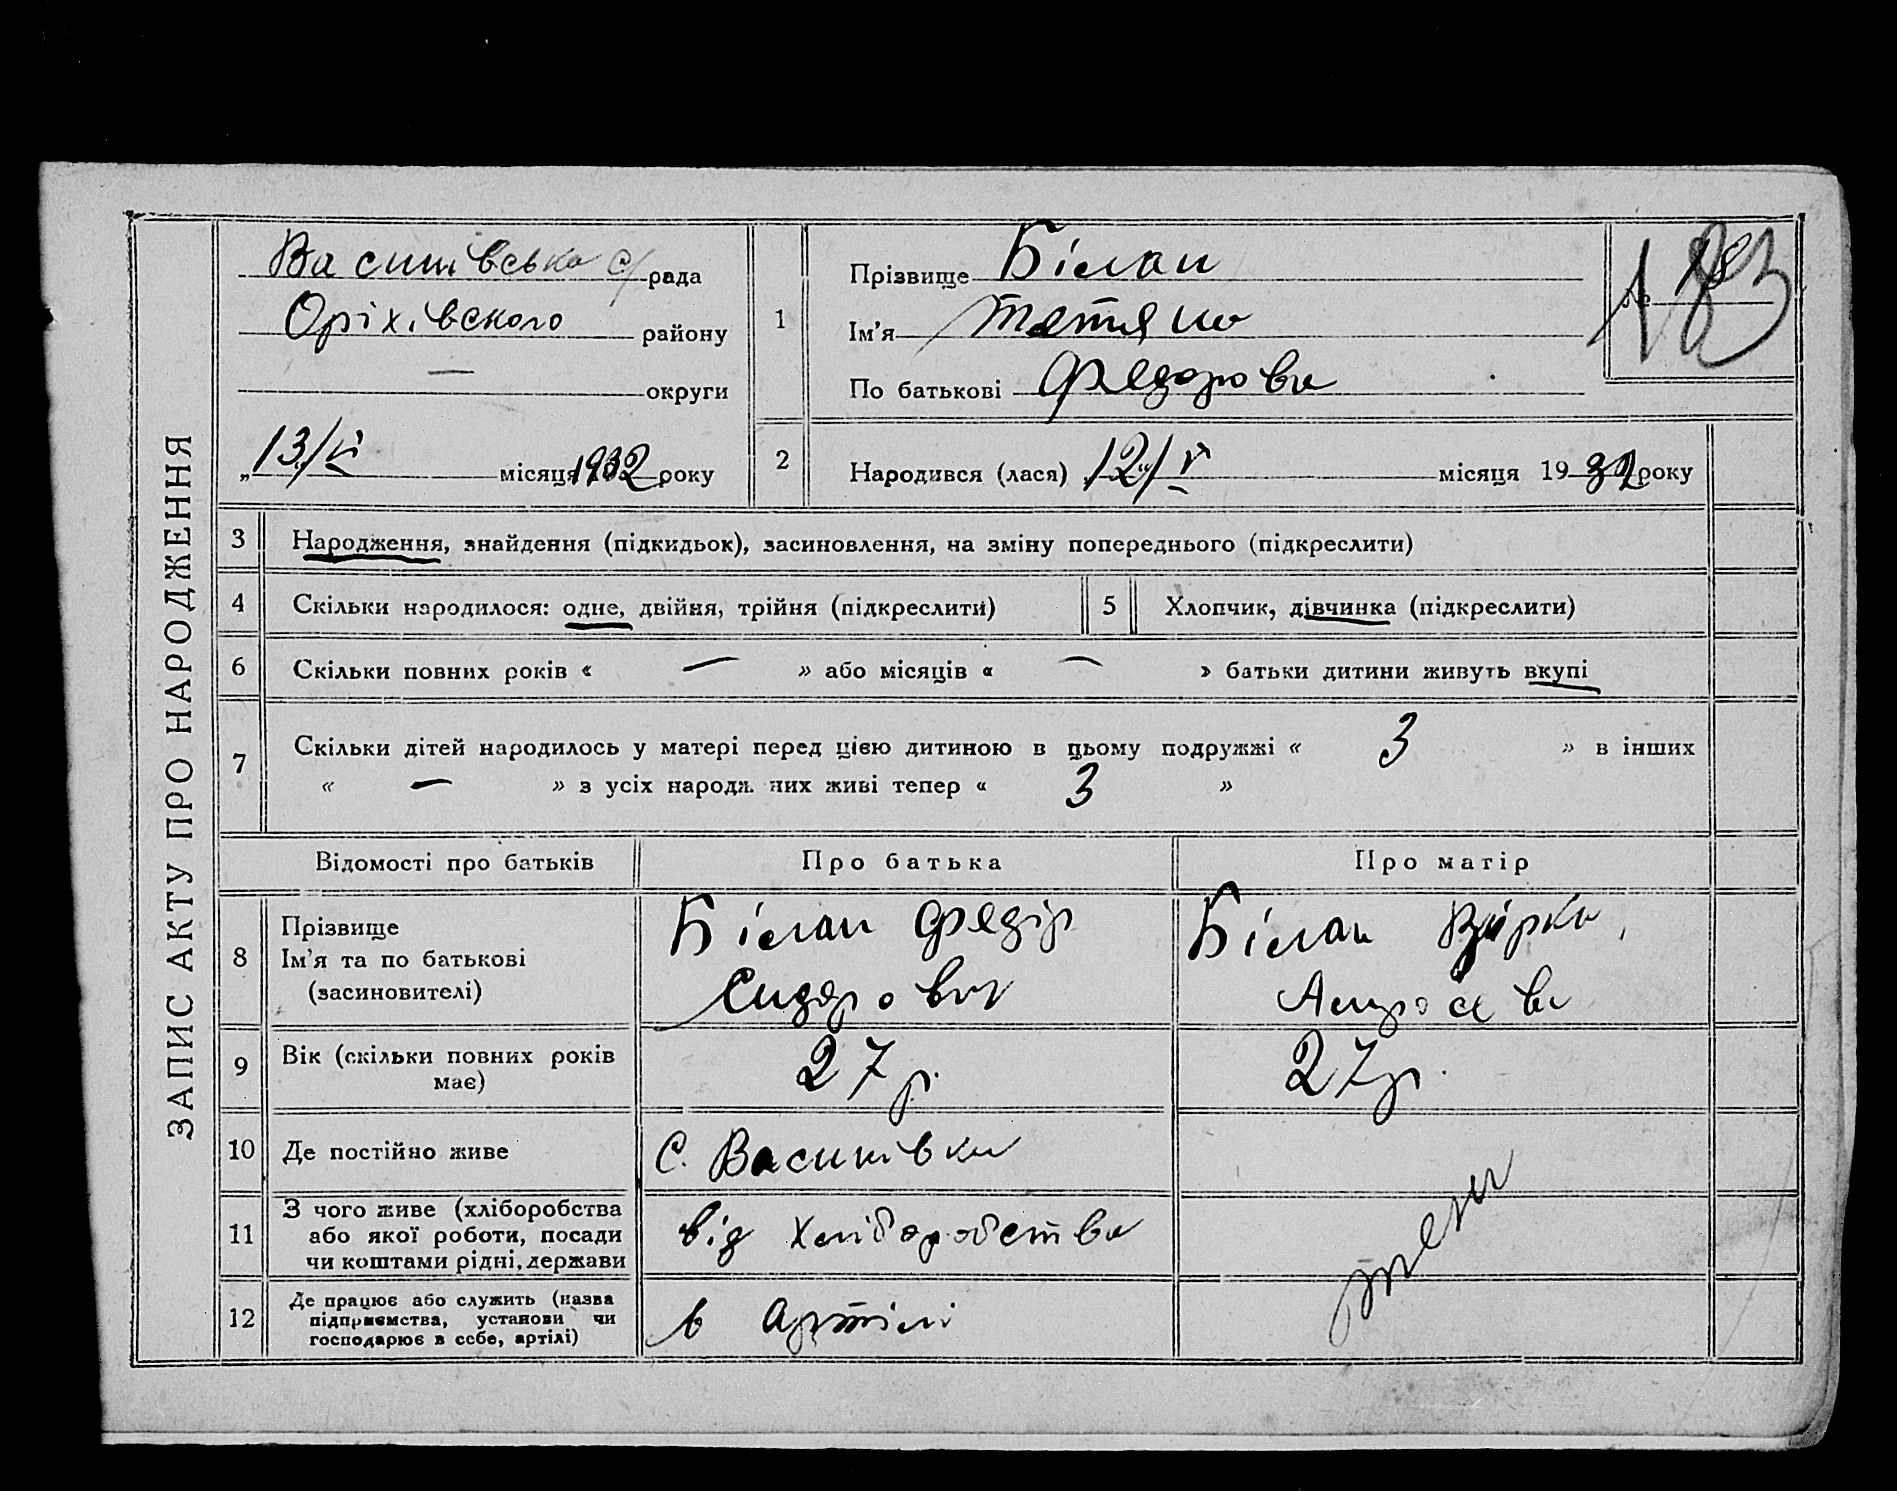 ЗАПИС АКТУ ПРО НАРОДЖЕННЯ
Василівська с/рада
Оріхівского району
— округи
„13/VI місяця 1932 року
1
Прізвище Білан
Ім'я Тетяна
По батькові Федоровна
№ 183
2
Народився (лася) 12/V місяця 1932 року
3 Народження, знайдення (підкидьок), засиновлення, на зміну попереднього (підкреслити)
4 Скільки народилося: одне, двійня, трійня (підкреслити)
5 Хлопчик, дівчинка (підкреслити)
6 Скільки повних років « — » або місяців « — » батьки дитини живуть вкупі
7 Скільки дітей народилось у матері перед цією дитиною в цьому подружжі « 3 » в інших
« — » з усіх народж них живі тепер « 3 »
Відомості про батьків Про батька Про матір
8 Прізвище
Ім'я та по батькові
(засиновителі)
Білан Федір
Сидорович
Білан
9 Вік (скільки повних років
має)
27 р.
27 р.
10 Де постійно живе
с. Василівка
11 З чого живе (хліборобства
або якої роботи, посади
чи коштами рідні, держави
від хліборобства
12 Де працює або служить (назва
підприємства, установи чи
господарює в себе, артілі)
в артілі